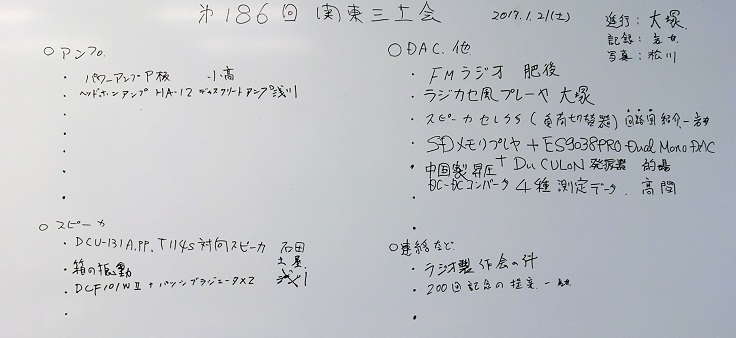 第186回 関東三土会 2017.1.21(土)
進行: 大塚
記録:
写真: 松川
○アンプ.
・パワーアンプ P板 小高
・ヘッドホンアンプ HA-12 ディスクリートアンプ 浅川
○DAC.他
・FMラジオ 肥後
・ラジカセ風プレーヤ 大塚
・スピーカセレクタ (負荷切替器) 回路図紹介
・SDメモリプレヤ + ES9038PRO Dual Mono DAC
・中国製昇圧 + DuCULoN 発振器 的場
・DC-DCコンバータ 4種 測定データ. 高間
○スピーカ
・DCU-131A.PP. T114S 対向スピーカ 石田
・箱の振動 土屋
・DCF101WⅡ + パッシブラジエータ×2 浅川
○連絡など
・ラジオ製作会の件
・200回記念の